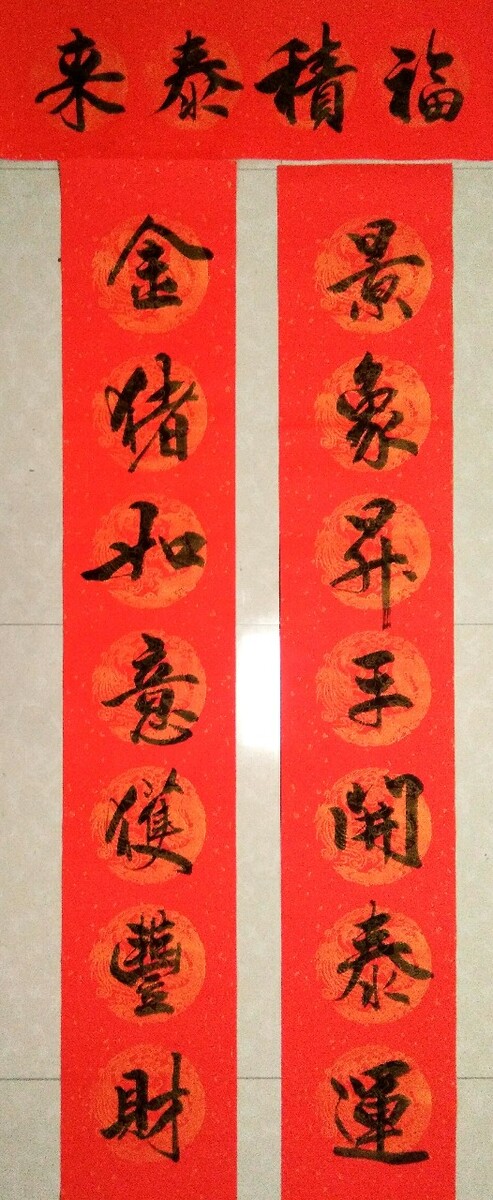 福積泰来
景象昇平開泰運
金猪如意獲豐財